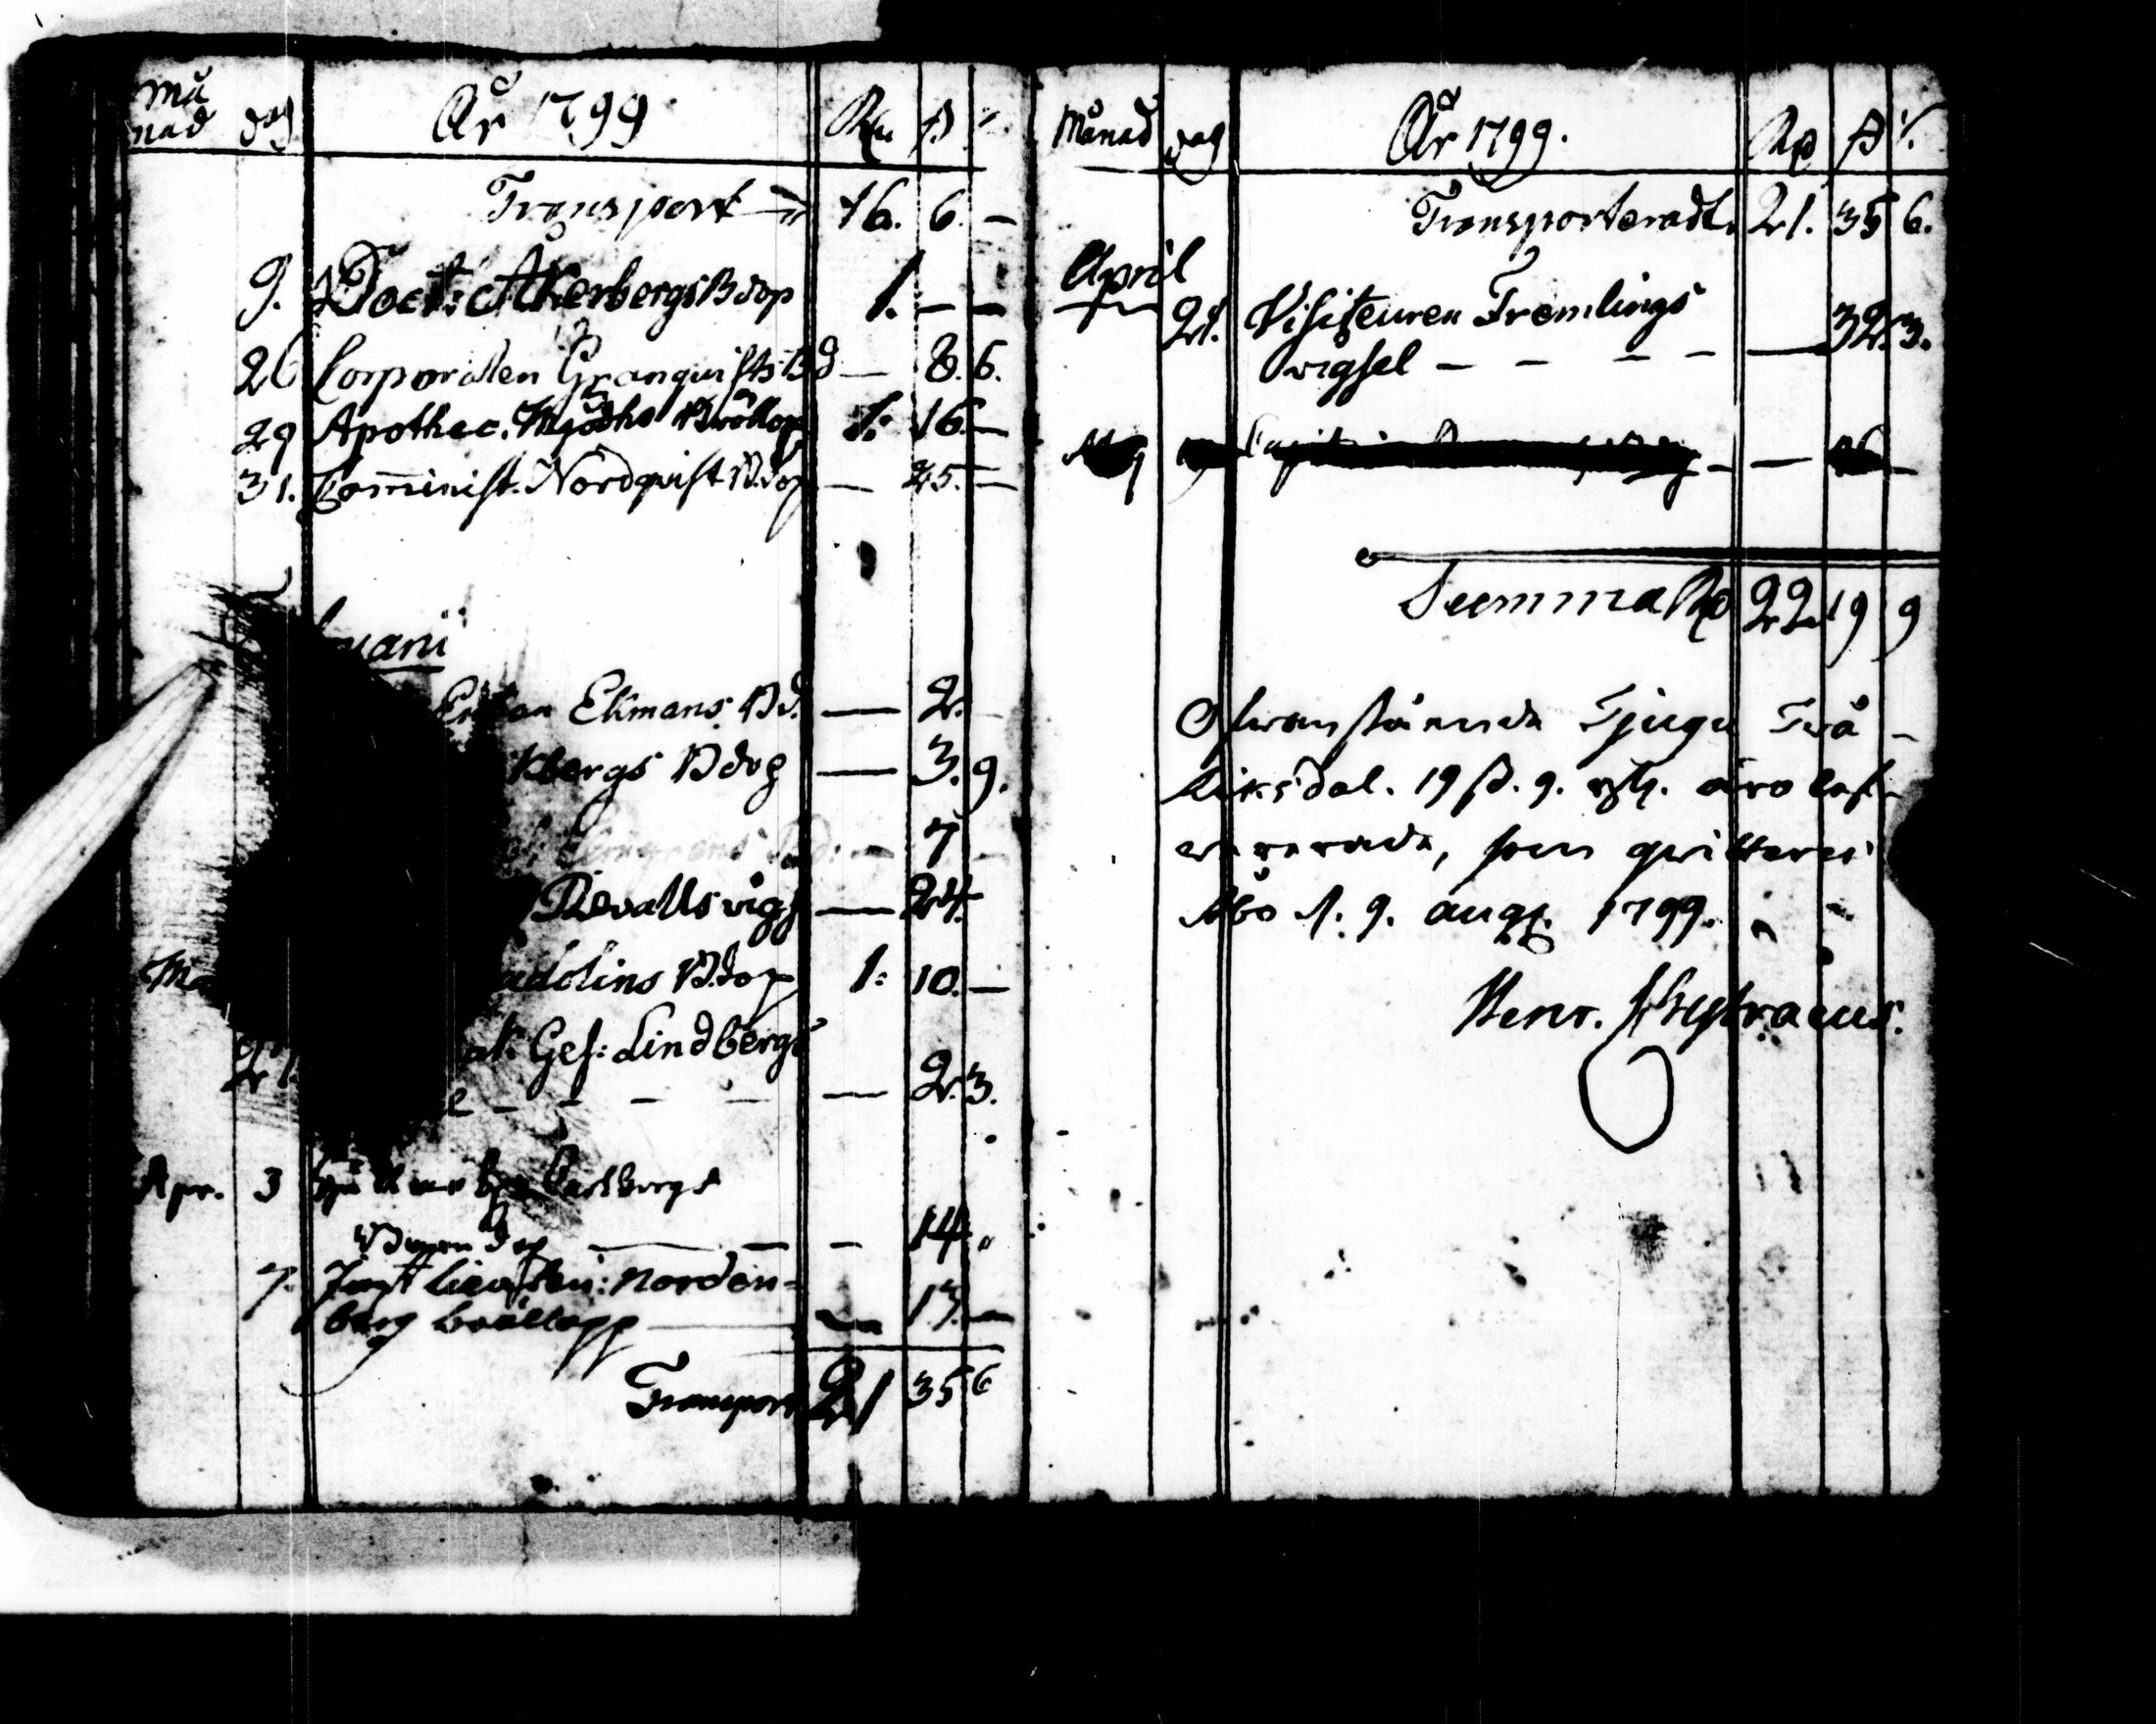 Må
nad dag År 1799 Rd ß
Transport 16. 6. —
9. Doct: Åkerbergs B dop 1. — —
26 Corporalen Granquists Bd — 8. 6.
29 Apothec. Bröllop 1: 16. —
31. Comminist. Nordquist B. dop — 25. —
uarii
Enkan Ekmans Bd. — 2. —
kbergs B dop — 3. 9.
— 7 —
Revalls vigs — 24.
Ma adolins B. dop 1: 10. —
Gef: Lindbergs
— — — — 2. 3.
Apr. 3 Carlbergs
Barn dop — — — 14.
7. Lieuten: Norden-
berg bröllopp — — 13. —
Transport 21 35 6
Månad dag År 1799. Rd ß
Transporteradt. 21. 35 6.
April
21. Visiteuren Fremlings
vigsel — — — — — 32. 3.
Maj
Summa Rd 22. 19 9
Ofvanstående Tjugu Två
Riksdal. 19 ß. 9. äro lef-
vererade, som qvitteras
Åbo d. 9. aug. 1799.
Henr.